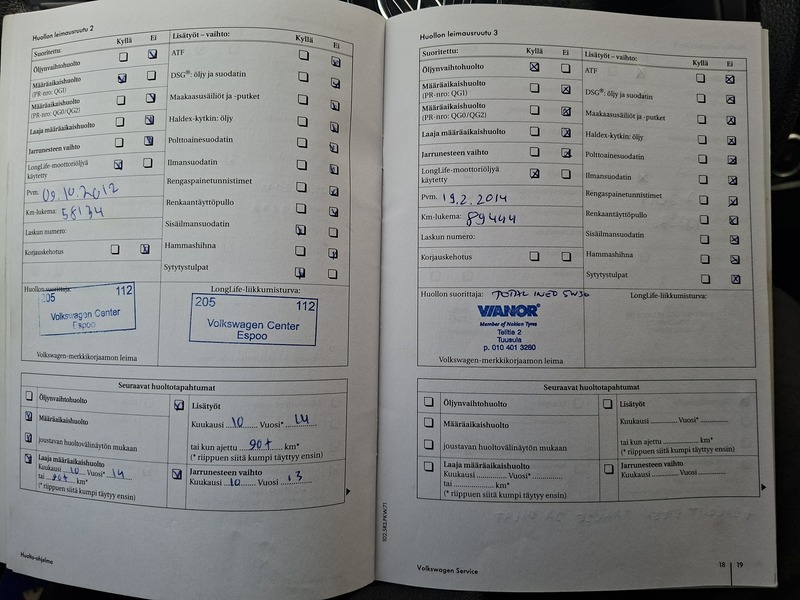 Huollon leimausruutu 2
Suoritettu: Kyllä Ei
Öljynvaihtohuolto
Määräaikaishuolto
(PR-nro: QG1)
Määräaikaishuolto
(PR-nro: QG0/QG2)
Laaja määräaikaishuolto
Jarrunesteen vaihto
LongLife-moottoriöljyä
käytetty
Pvm. 09.10.2012
Km-lukema: 58134
Laskun numero:
Korjauskehotus
Lisätyöt – vaihto: Kyllä Ei
ATF
DSG®: öljy ja suodatin
Maakaasusäiliöt ja -putket
Haldex-kytkin: öljy
Polttoainesuodatin
Ilmansuodatin
Rengaspainetunnistimet
Renkaantäyttöpullo
Sisäilmansuodatin
Hammashihna
Sytytystulpat
Huollon suorittaja:
205 112
Volkswagen Center
Espoo
LongLife-liikkumisturva:
205 112
Volkswagen Center
Espoo
Volkswagen-merkkikorjaamon leima
Seuraavat huoltotapahtumat
Öljynvaihtohuolto
Määräaikaishuolto
joustavan huoltovälinäytön mukaan
Laaja määräaikaishuolto
Kuukausi 10 Vuosi* 14
tai 90t km*
(* riippuen siitä kumpi täyttyy ensin)
Lisätyöt
Kuukausi 10 Vuosi* 14
tai kun ajettu 90t km*
(* riippuen siitä kumpi täyttyy ensin)
Jarrunesteen vaihto
Kuukausi 10 Vuosi 13
Huolto-ohjelma
Huollon leimausruutu 3
Suoritettu: Kyllä Ei
Öljynvaihtohuolto
Määräaikaishuolto
(PR-nro: QG1)
Määräaikaishuolto
(PR-nro: QG0/QG2)
Laaja määräaikaishuolto
Jarrunesteen vaihto
LongLife-moottoriöljyä
käytetty
Pvm. 19.2.2014
Km-lukema: 89444
Laskun numero:
Korjauskehotus
Lisätyöt – vaihto: Kyllä Ei
ATF
DSG®: öljy ja suodatin
Maakaasusäiliöt ja -putket
Haldex-kytkin: öljy
Polttoainesuodatin
Ilmansuodatin
Rengaspainetunnistimet
Renkaantäyttöpullo
Sisäilmansuodatin
Hammashihna
Sytytystulpat
Huollon suorittaja: TOTAL INEO 5W30
VIANOR
Member of Nokian Tyres
Telitie 2
Tuusula
p. 010 401 3280
LongLife-liikkumisturva:
Volkswagen-merkkikorjaamon leima
Seuraavat huoltotapahtumat
Öljynvaihtohuolto
Määräaikaishuolto
joustavan huoltovälinäytön mukaan
Laaja määräaikaishuolto
Kuukausi Vuosi*
tai km*
(* riippuen siitä kumpi täyttyy ensin)
Lisätyöt
Kuukausi Vuosi*
tai kun ajettu km*
(* riippuen siitä kumpi täyttyy ensin)
Jarrunesteen vaihto
Kuukausi Vuosi
102.5R2.PKW.71
Volkswagen Service
18 19